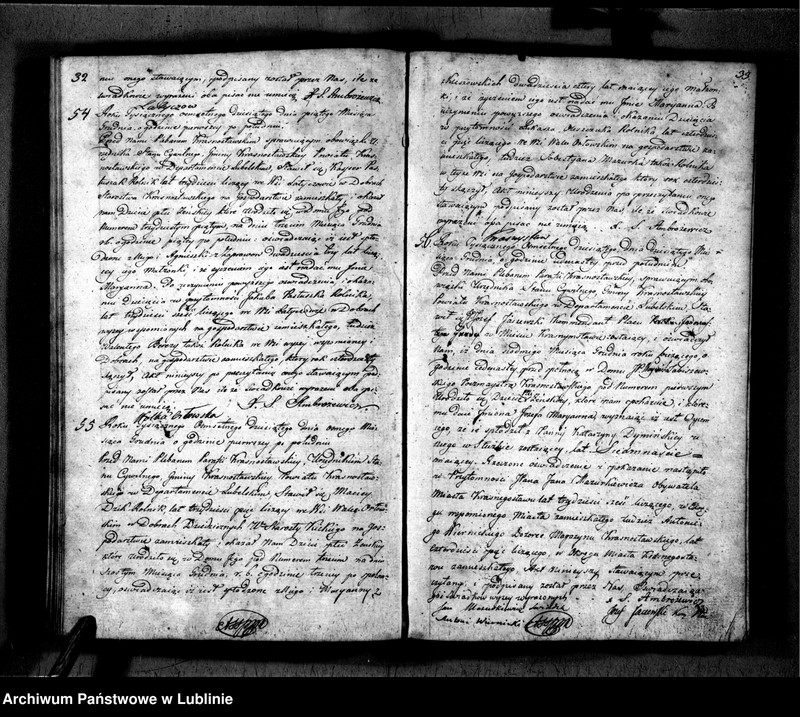 32
nu onego stawaiącym, podpisany został przez Nas, ile że
świadkowie wyrazeni oba pisać nie umieią X. S. Ambrożewicz
Łatyczow
54 Roku Tysiącznego osmsetnego dziesiątego dnia piątego Miesiąca
Grudnia, o godzinie pierwszy po południu.
Przed Nami Plebanem Krasnostawskim sprawuiącym obowiązki U-
rzędnika Stanu Cywilnego Gminy Krasnostawskiey Powiatu Kras-
nostawskiego w Departamencie Lubelskim, Stawił się
Rolnik lat trzydzieści liczący we Wsi w Dobrach
Starostwa Krasnostawskiego na gospodarstwie zamieszkały, i okazał
nam Dziecie płci Żeńskiey które urodziło się w domu Jego pod
Numerem trzydziestym piątym, na dniu trzecim Miesiąca Grudnia
o godzinie piąty po południu, oświadczaiąc iż iest spło-
dzone z Niego i Agnieszki z dwadzieścia trzy lat maią-
cey iego Małżonki, i że życzeniem iego iest nadać mu Jmie
Maryanna. Po uczynieniu powyższego oświadczenia i okaza-
niu Dziecięcia w przytomności Jakuba Rolnika,
lat trzydzieści sześć liczącego w Wsi w Dobrach
wyżey wspomnionych na gospodarstwie zamieszkałego, tudzież
Walentego także Rolnika w Wsi wyżey wspomnioney i
Dobrach, na gospodarstwie zamieszkałego, który rok czterdziesty
skączył, Akt ninieyszy po przeczytaniu onego stawaiącym pod-
pisany został przez Nas ile że świadkowie wyrazeni oba pi-
sać nie umieią. X. S. Ambrożewicz
Wolka Orłowska
55 Roku Tysiącznego Osmsetnego Dziesiątego dnia osmego Mie-
siąca Grudnia o godzinie pierwszy po południu
Przed Nami Plebanem Parafii Krasnostawskiey, Urzędnikiem Sta-
nu Cywilnego Gminy Krasnostawskiey Powiatu Krasnostaw-
skiego w Departamencie Lubelskim, Stawił się Maciey
Dzik Rolnik, lat trzydzieści pięć liczący we Wsi Wolce Orłow-
skiey w Dobrach Dziedzicznych Kickiego na gos-
podarstwie zamieszkały i okazał Nam Dziecie płci Żeńskiey
które urodziło się w Domu Jego pod Numerem trzecim na dniu
szóstym Miesiąca Grudnia, r. b. o godzinie trzeciey po połud-
niu, oświadczaiąc iż iest spłodzone z Niego i Maryanny z
33
dwadzieścia cztery lat maiącey iego Małżon-
ki, i że życzeniem iego iest nadać mu Jmie Maryanna. Po
uczynieniu powyższego oświadczenia i okazaniu Dziecięcia
w przytomności Łukasza Rolnika lat czterdzieści
pięć liczącego w Wsi Wolce Orłowskiey na gospodarstwie za-
mieszkałego, tudzież Sebestyana Mazurka także Rolnika
w teyże Wsi na gospodarstwie zamieszkałego który rok czterdzies-
ty skączył, Akt ninieyszy Urodzenia po przeczytaniu onego
stawaiącym podpisany został przez Nas, ile że świadkowie
wyrażeni oba pisać nie umieią. X. S. Ambrożewicz
Krasnystaw
56 Roku Tysiącznego Osmsetnego Dziesiątego Dnia Dziesiątego Mie-
siąca Grudnia o godzinie iedenastey przed południem.
Przed Nami Plebanem Parafii Krasnostawskiey, sprawuiącym obo-
wiązki Urzędnika Stanu Cywilnego, Gminy Krasnostawskiey
Powiatu Krasnostawskiego w Departamencie Lubelskim, Sta-
wił się Józef Jasieński Kommendant Placu
w Mieście Krasnymstawie zostaiący, i oświadczył
Nam, iż dnia siódmego Miesiąca Grudnia roku bieżącego, o
godzinie iedenastey przed północą w Domu
skiego Pocztmaystra Krasnostawskiego pod Numerem pierwszym
urodziło się Dziecie płci Żeńskiey, które nam okazuie, i które-
mu daie Jmiona Józefa Maryanna, wyznaiąc iż iest Oycem
iego, że ie spłodził z Panny Katarzyny Dymińskiey
w Służbie zostaiącey, lat Siedmnaście
maiącey. Rzeczone oświadczenie i pokazanie nastąpiło
w Przytomności Pana Jana Mazurkiewicza Obywatela
Miasta Krasnegostawu lat trzydzieści sześć liczącego, w Okrę-
gu wspomnionego Miasta zamieszkałego tudzież Antonie-
go Wiernickiego Dozorcę Magazynu Krasnostawskiego, lat
czterdzieści pięć liczącego, w Okręgu Miasta Krasnegosta-
wu zamieszkałego. Akt ninieyszy stawaiącym prze-
czytany, i podpisany został przez Nas, Oświadczaiącego
i Świadków wyżey wyrażonych.
X. S. Ambrożewicz
Jan Mazurkiewicz świadek
Antoni Wiernicki
Józef Jasieński Kom. Pl.
Archiwum Państwowe w Lublinie